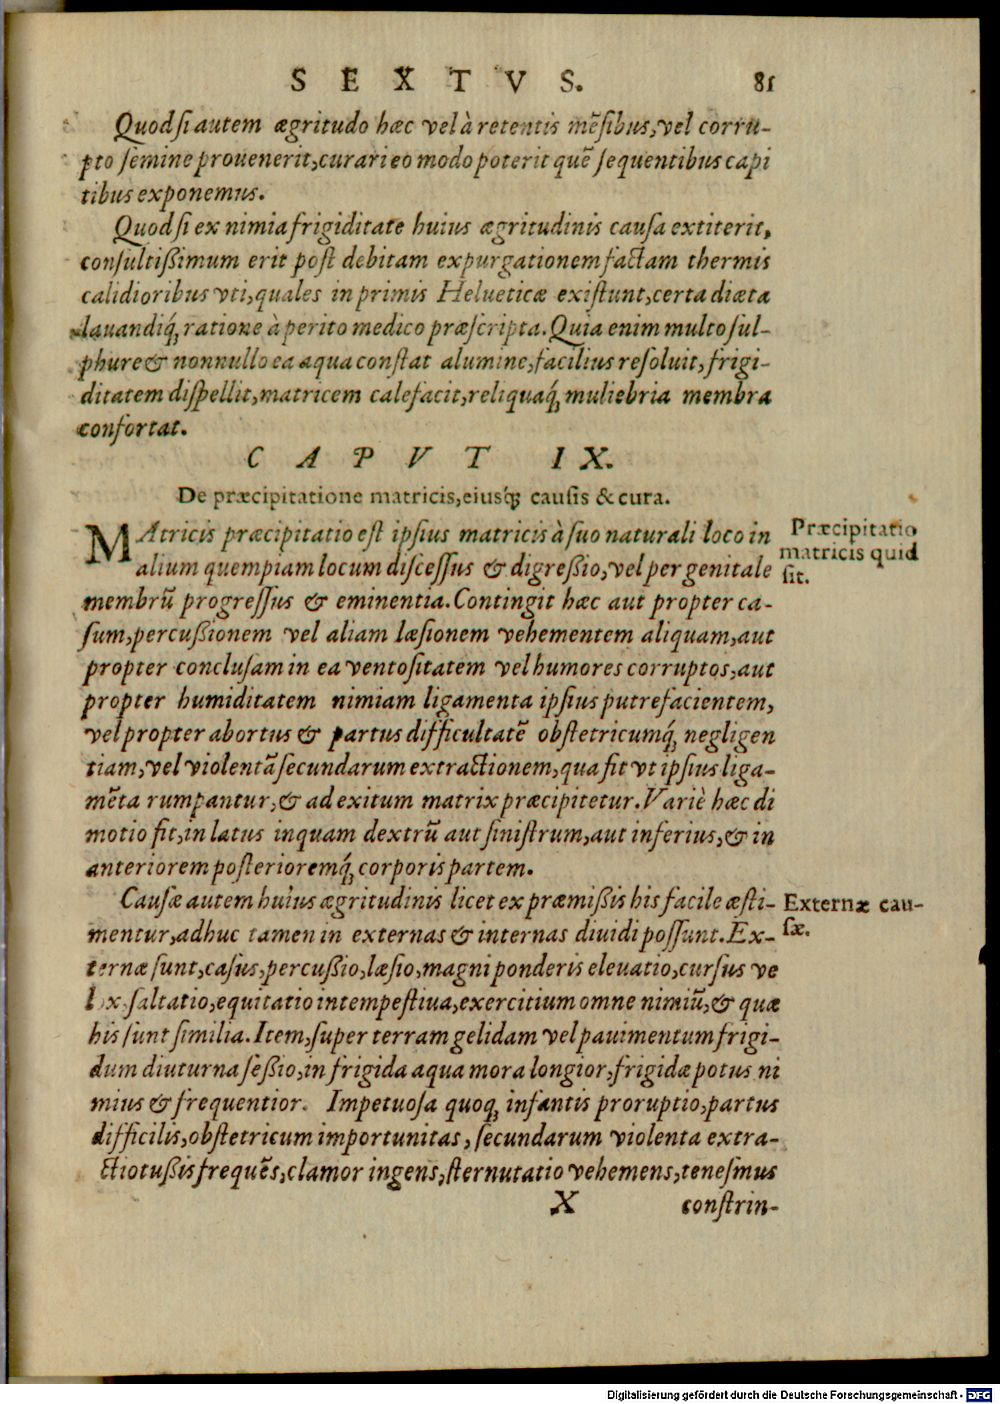 SEXTVS. 81
Quod si autem ægritudo hæc vel à retentis mẽsibus, vel corru-
pto semine prouenerit, curari eo modo poterit quẽ sequentibus capi
tibus exponemus.
Quod si ex nimia frigiditate huius ægritudinis causa extiterit,
consultißimum erit post debitam expurgationem factam thermis
calidioribus vti, quales in primis Helueticæ existunt, certa diæta
lauandiq́; ratione à perito medico præscripta. Quia enim multo sul-
phure & nonnullo ea aqua constat alumine, facilius resoluit, frigi-
ditatem dispellit, matricem calefacit, reliquaq́; muliebria membra
confortat.
CAPVT IX.
De præcipitatione matricis, eiusq́; causis & cura.
MAtricis præcipitatio est ipsius matricis à suo naturali loco in
alium quempiam locum discessus & digreßio, vel per genitale
membrũ progressus & eminentia. Contingit hæc aut propter ca-
sum, percußionem vel aliam læsionem vehementem aliquam, aut
propter conclusam in ea ventositatem vel humores corruptos, aut
propter humiditatem nimiam ligamenta ipsius putrefacientem,
vel propter abortus & partus difficultatẽ obstetricumq́; negligen
tiam, vel violentã secundarum extractionem, qua fit vt ipsius liga-
mẽta rumpantur, & ad exitum matrix præcipitetur. Variè hæc di
motio fit, in latus inquam dextrũ aut sinistrum, aut inferius, & in
anteriorem posterioremq́; corporis partem.
Præcipitatio
matricis quid
sit.
Causæ autem huius ægritudinis licet ex præmißis his facile æsti-
mentur, adhuc tamen in externas & internas diuidi possunt. Ex-
ternæ sunt, casus, percußio, læsio, magni ponderis eleuatio, cursus ve
lox, saltatio, equitatio intempestiua, exercitium omne nimiũ, & quæ
his sunt similia. Item, super terram gelidam vel pauimentum frigi-
dum diuturna seßio, in frigida aqua mora longior, frigidæ potus ni
mius & frequentior. Impetuosa quoq; infantis proruptio, partus
difficilis, obstetricum importunitas, secundarum violenta extra-
ctio tußis frequẽs, clamor ingens, sternutatio vehemens, tenesmus
Externæ cau-
sæ.
X constrin-
Digitalisierung gefördert durch die Deutsche Forschungsgemeinschaft - DFG